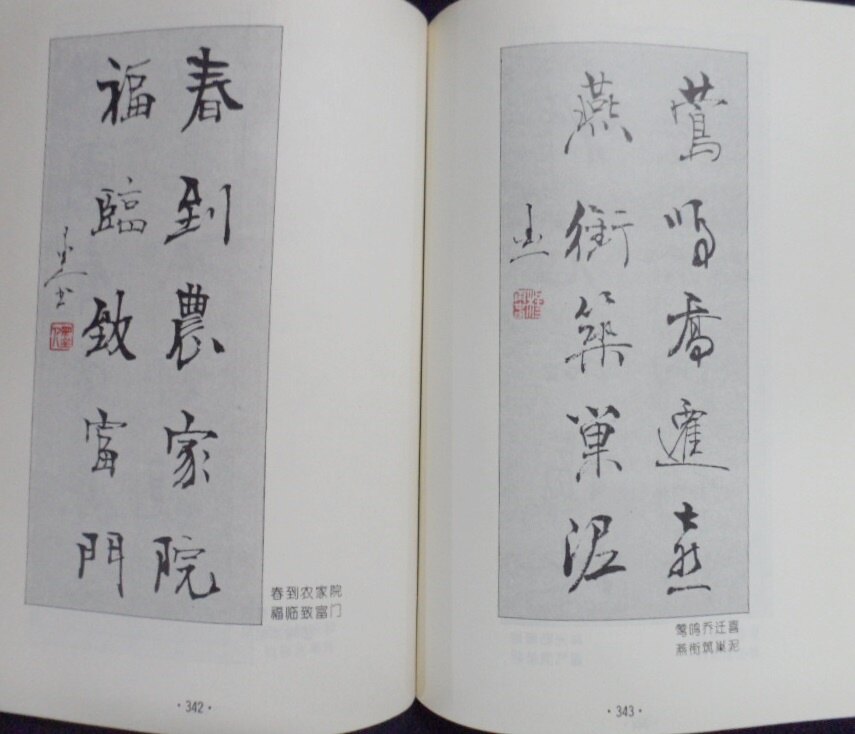 春到農家院
福臨致富門
春到农家院
福临致富门
·342·
鶯鳴喬遷憙
燕銜築巢泥
莺鸣乔迁喜
燕衔筑巢泥
·343·